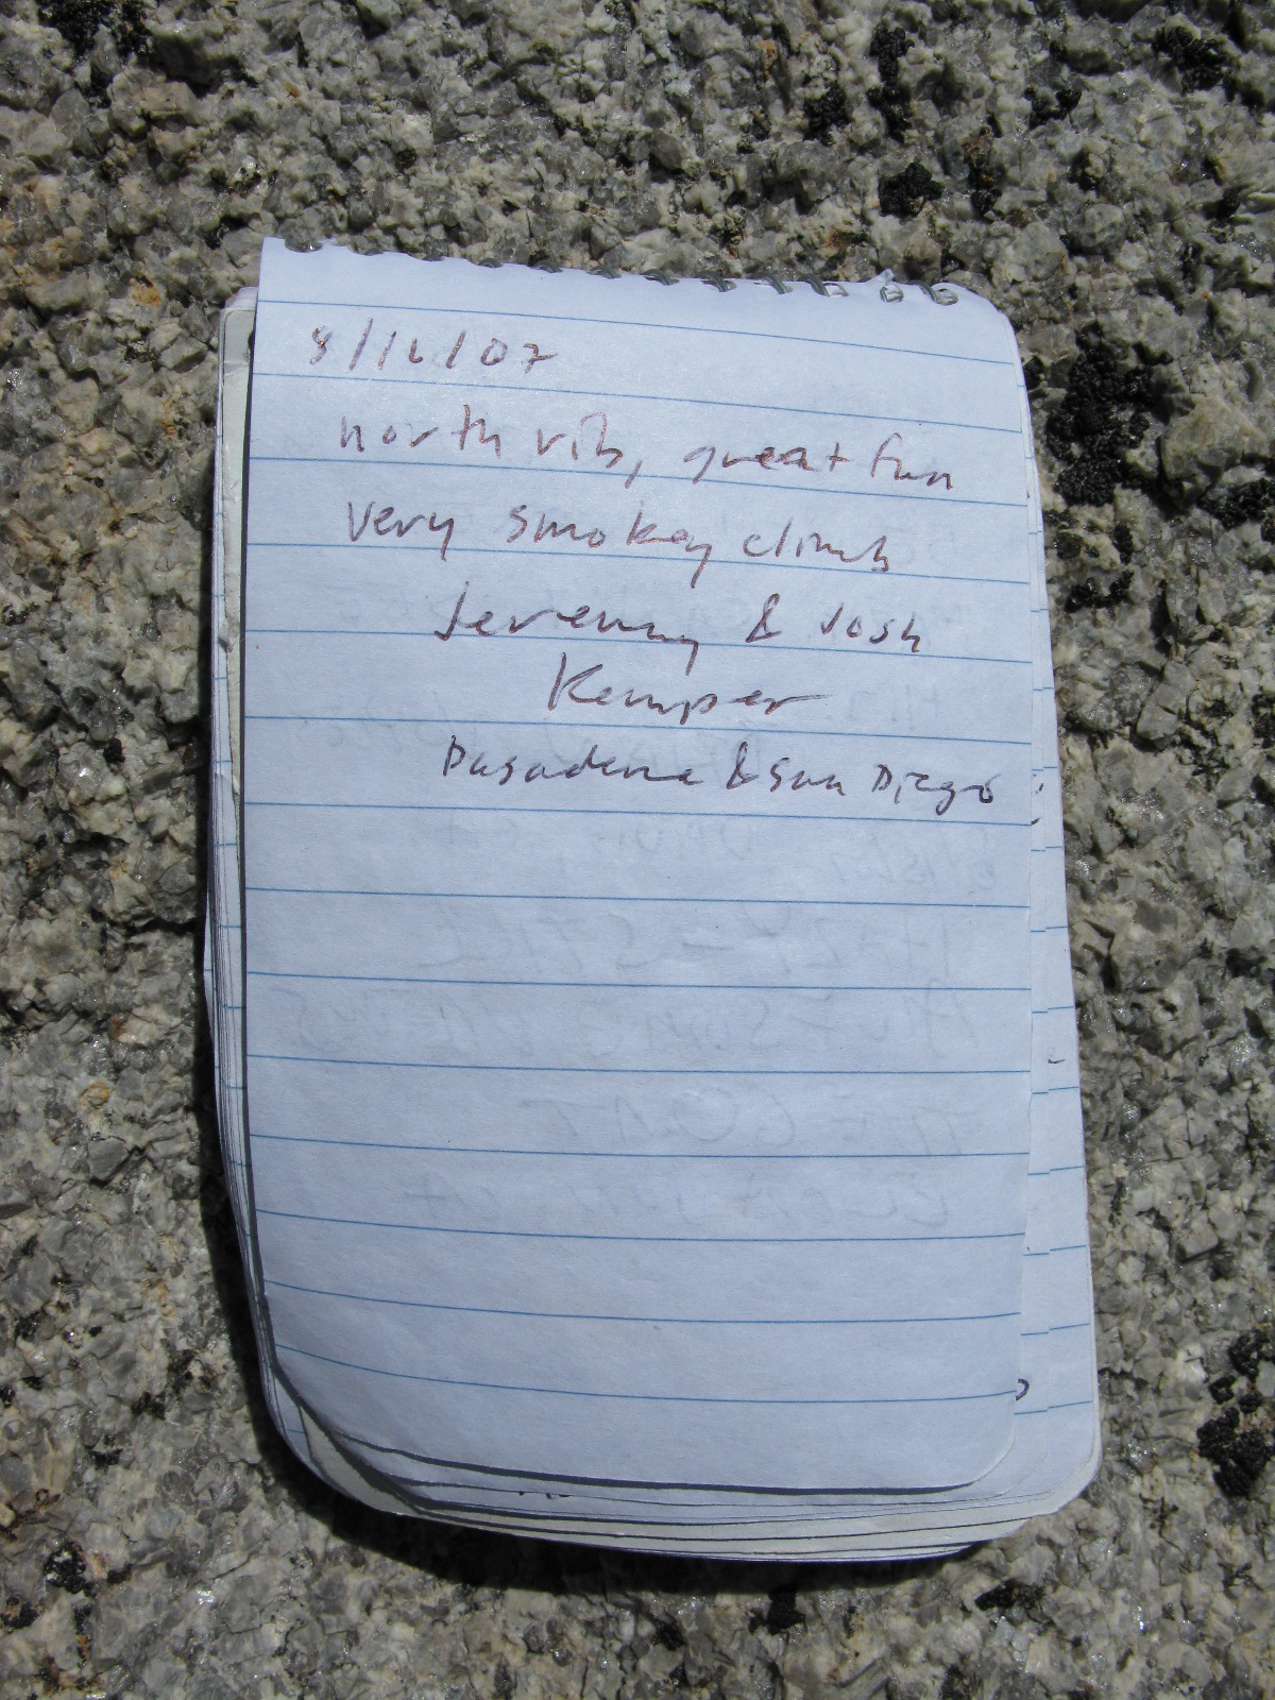 8/16/07
north rib, great fun
very smokey climb
Jeremy & Josh
Kemper
Pasadena & San Diego